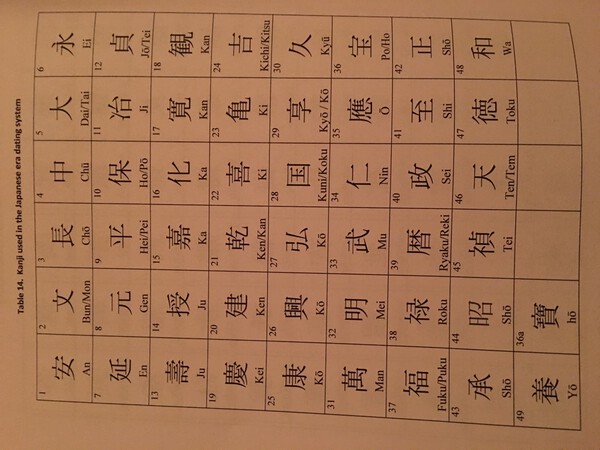 Table 14. Kanji used in the Japanese era dating system
1 2 3 4 5 6
安 文 長 中 大 永
An Bun/Mon Chō Chū Dai/Tai Ei
7 8 9 10 11 12
延 元 平 保 冶 貞
En Gen Hei/Pei Ho/Pō Ji Jō/Tei
13 14 15 16 17 18
壽 授 嘉 化 寛 観
Ju Ju Ka Ka Kan Kan
19 20 21 22 23 24
慶 建 乾 喜 亀 吉
Kei Ken Ken/Kan Ki Ki Kichi/Kitsu
25 26 27 28 29 30
康 興 弘 国 享 久
Kō Kō Kō Kuni/Koku Kyō/Kō Kyū
31 32 33 34 35 36
萬 明 武 仁 應 宝
Man Mei Mu Nin Ō Po/Ho
37 38 39 40 41 42
福 禄 暦 政 至 正
Fuku/Puku Roku Ryaku/Reki Sei Shi Shō
43 44 45 46 47 48
承 昭 禎 天 徳 和
Shō Shō Tei Ten/Tem Toku Wa
49 36a
養 寶
Yō hō